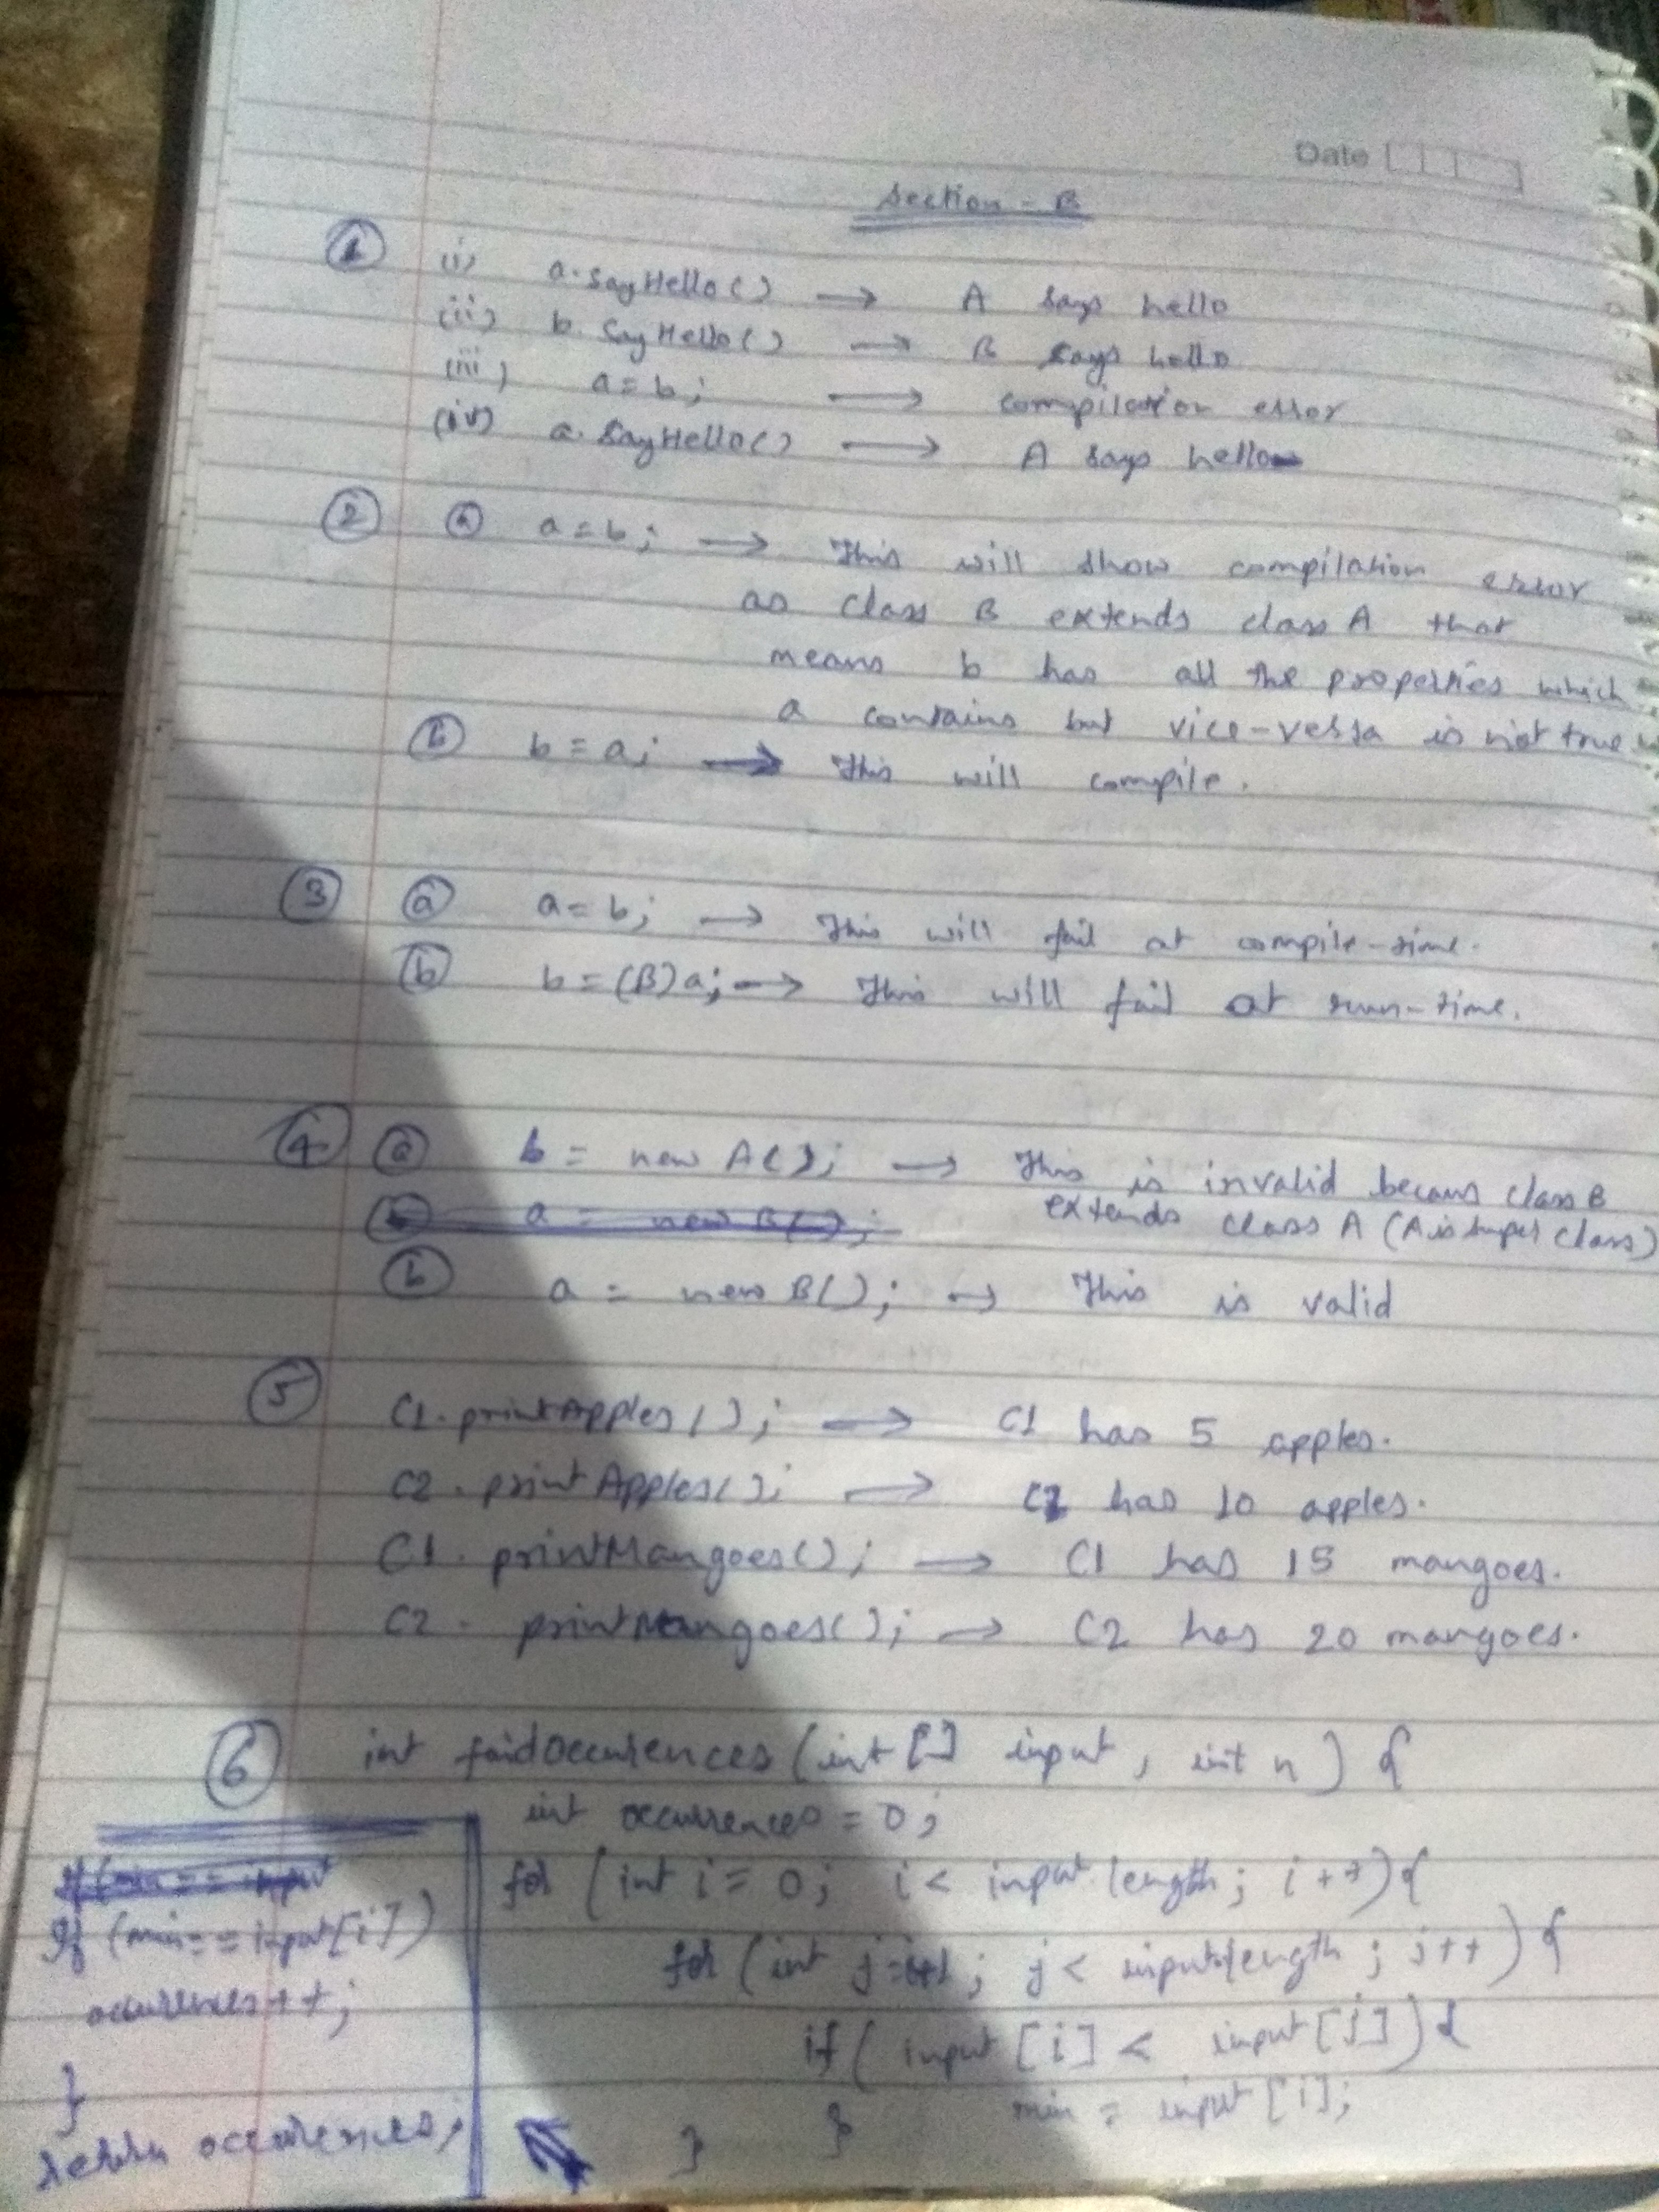 Date
Section - B
1 (i) a. SayHello() → A says hello
(ii) b. SayHello() → B says hello
(iii) a = b; → compilation error
(iv) a. SayHello() → A says hello
2 a a = b; → This will show compilation error
as class B extends class A that
means b has all the properties which
a contains but vice-versa is not true
b b = a; → This will compile.
3 a a = b; → This will fail at compile-time.
b b = (B)a; → This will fail at run-time.
4 a b = new A(); → This is invalid becaus class B
extends class A (A is super class)
a = new B();
b a = new B(); → This is valid
5 C1. printApples(); → C1 has 5 apples.
C2. printApples(); → C2 has 10 apples.
C1. printMangoes(); → C1 has 15 mangoes.
C2. printMangoes(); → C2 has 20 mangoes.
6 int findOccurences (int [] input, int n) {
int occurrences = 0;
for (int i = 0; i < input.length; i++) {
for (int j=i+1; j < input.length; j++) {
if ( input [i] < input [j] ) {
min = input [i];
}
}
If (min == input
If (min == input[i])
occurences++;
}
return occurences;